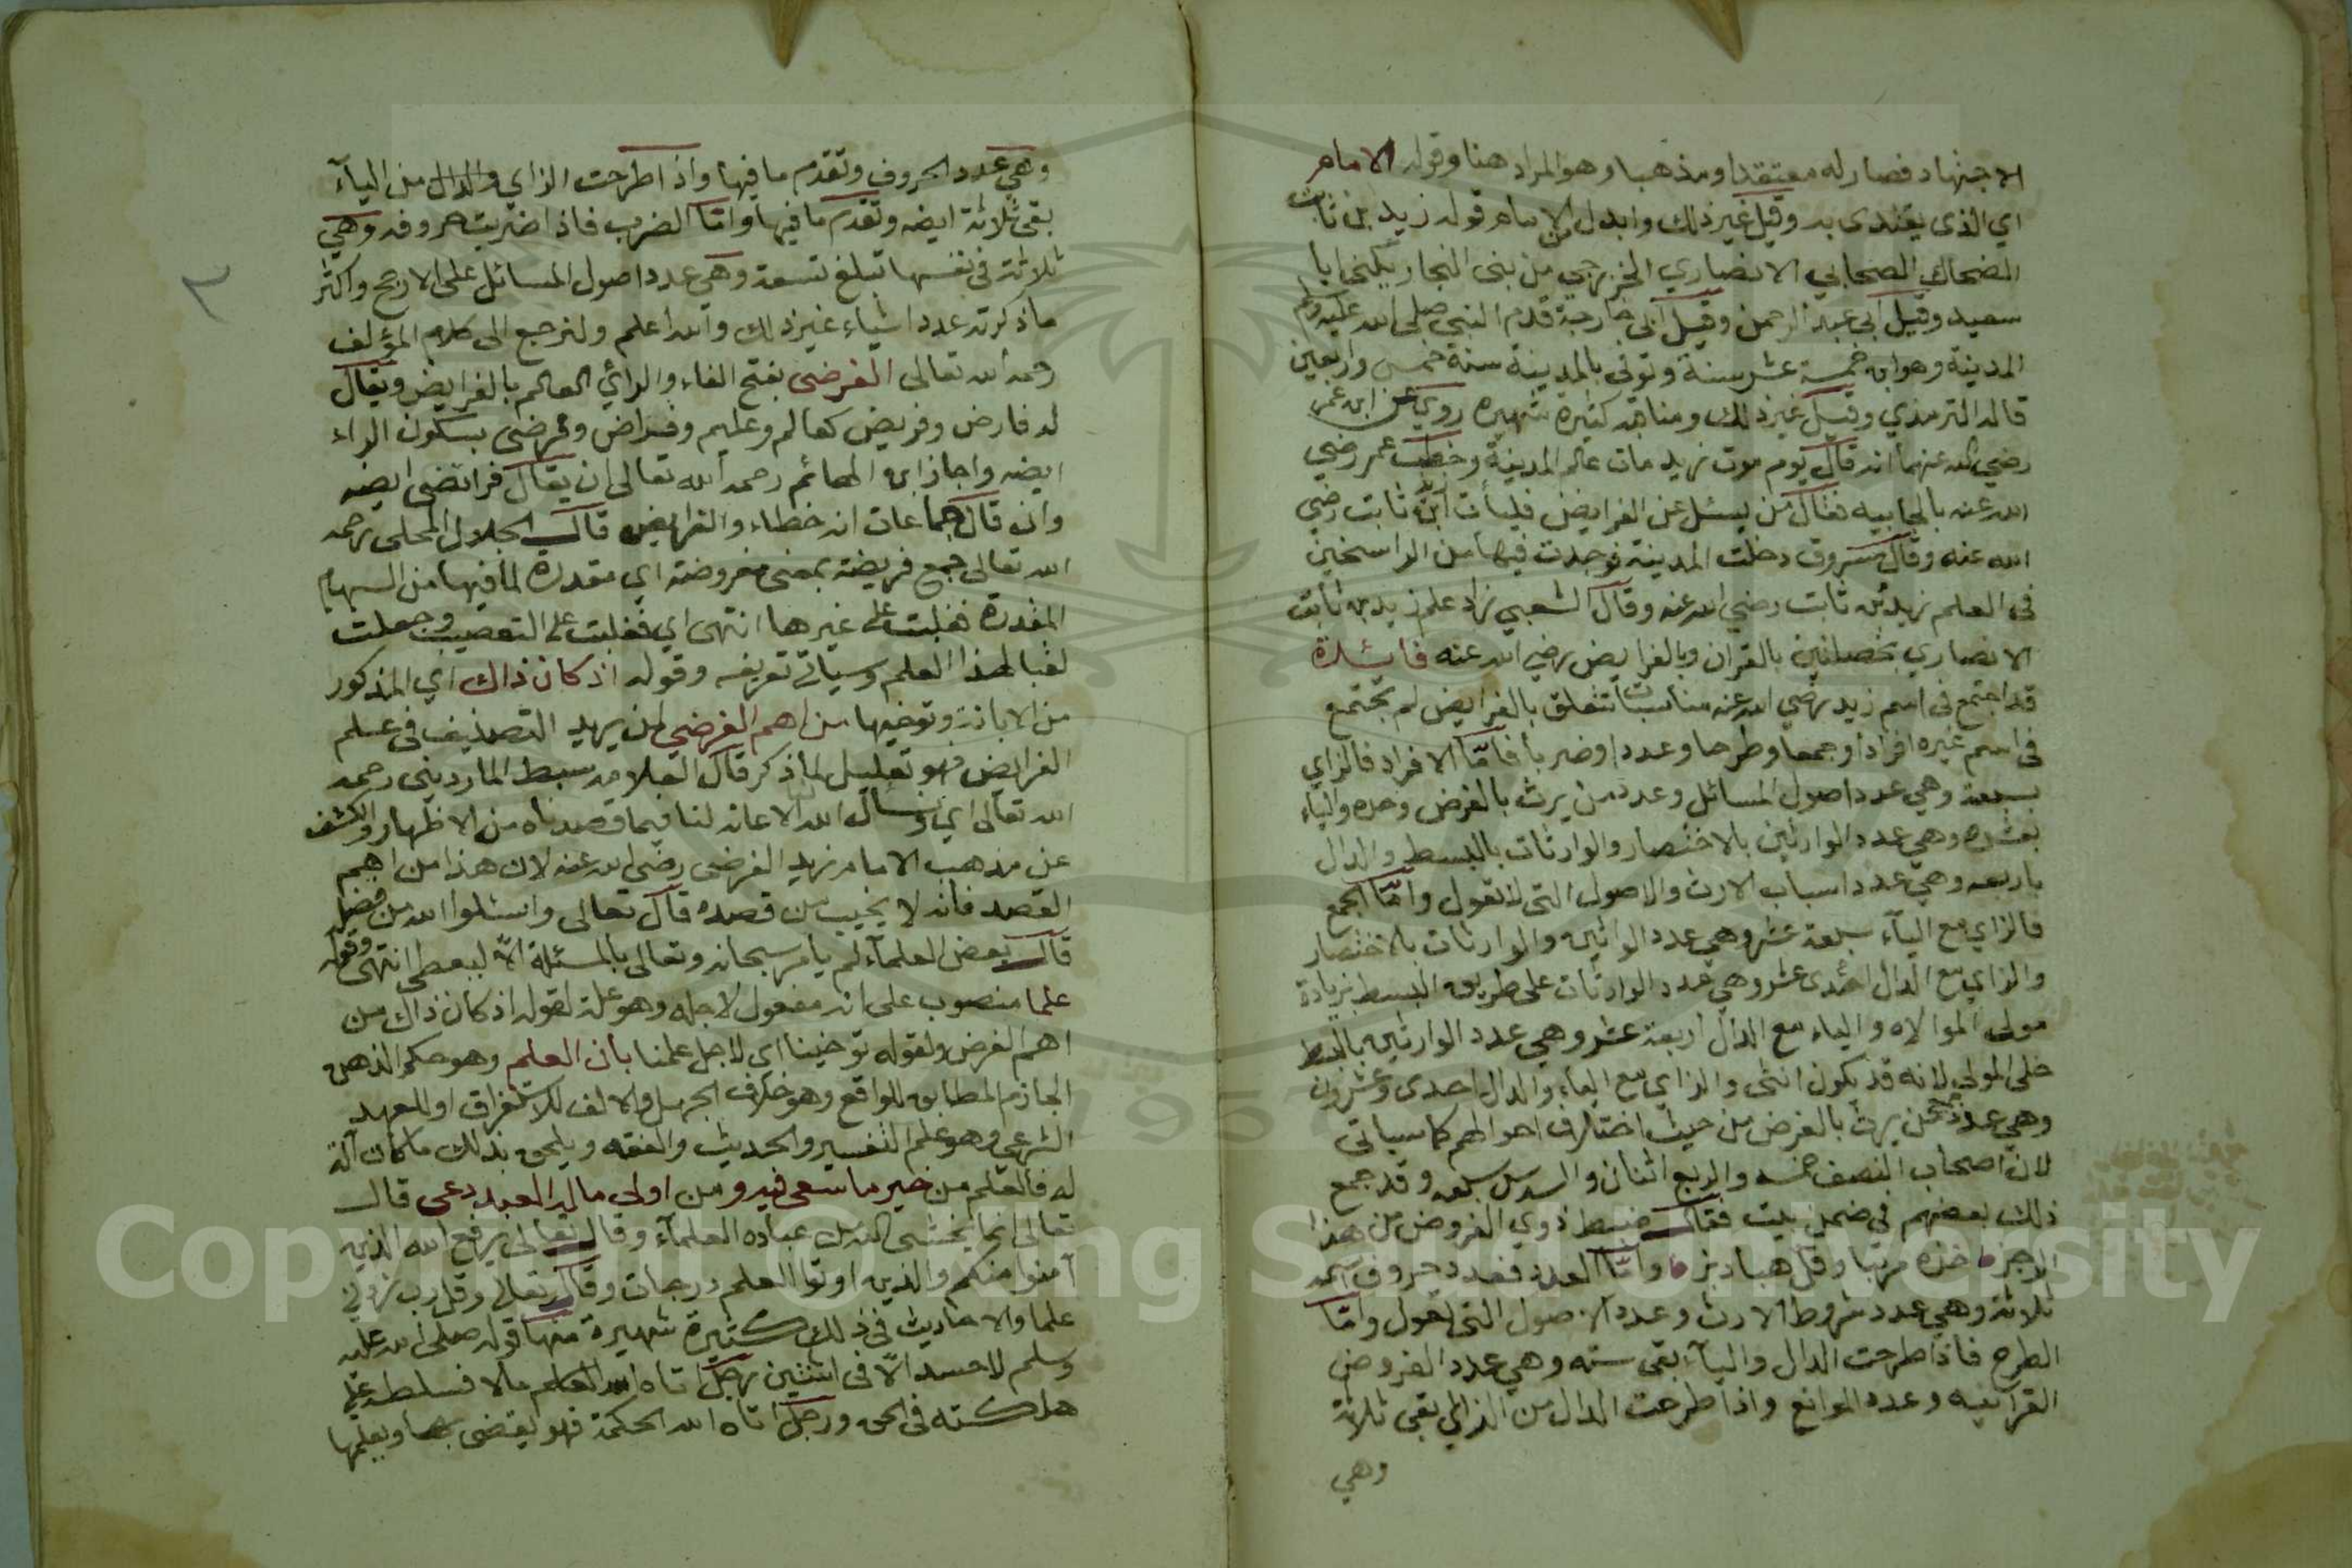 الاجتهاد فصار له معتقدا ومذهبا وهو المراد هنا وقوله الامام
اي الذي يقتدى به وقيل غير ذلك وابدل من الامام قوله زيد بن ثابت
الضحاك الصحابي الانصاري الخزرجي من بني النجار يكنى ابا
سعيد وقيل ابي عبد الرحمن وقيل ابي خارجة قدم النبي صلى الله عليه وسلم
المدينة وهو ابن خمسة عشر سنة وتوفي بالمدينة سنة خمس واربعين
قاله الترمذي وقيل غير ذلك ومناقبه كثيرة شهيرة روي عن ابن عمر
رضي الله عنهما انه قال يوم موت زيد مات عالم المدينة وخطب عمر رضي
الله عنه بالجابيه فقال من يسئل عن الفرايض فليأت زيد ابن ثابت رضي
الله عنه وقال مسروق دخلت المدينة فوجدت فيها من الراسخين
في العلم زيد بن ثابت رضي الله عنه وقال الشعبي زاد علم زيد بن ثابت
الانصاري بخصلتين بالقران وبالفرايض رضي الله عنه فائدة
قد اجتمع في اسم زيد رضي الله عنه مناسبات تتعلق بالفرايض لم تجتمع
في اسم غيره افرادا وجمعا وطرحا وعددا وضربا فامّا الافراد فالزاي
بسبعة وهي عدد اصول المسائل وعدد من يرث بالفرض وحده والياء
بعشره وهي عدد الوارثين بالاختصار والوارثات بالبسط والدال
باربعه وهي عدد اسباب الارث والاصول التي لا تعول وامّا الجمع
فالزاي مع اليآء سبعة عشر وهي عدد الوارثين والوارثات بالاختصار
والزاي مع الدال احدى عشر وهي عدد الوارثات على طريق البسط بزيادة
مولى الموالاه والياء مع الدال اربعة عشر وهي عدد الوارثين بالبسط
خلى المولى لانه قد يكون انثى والزاي مع الياء والدال احدى وعشرون
وهي عدد من يرث بالفرض من حيث اختلاف احوالهم كما سياتي
لان اصحاب النصف خمسه والربع اثنان والسدس سبعه وقد جمع
ذلك بعضهم في ضمن بيت فقال ضبط ذوي الفروض من هذا
الرجز خذه مرتبا وقل هبادبز وامّا العدد فعدد حروف اسمه
ثلاثة وهي عدد شروط الارث وعدد الاصول التي تعول وامّا
الطرح فاذا طرحت الدال واليآء بقى سته وهي عدد الفروض
القرآنيه وعدد الموانع واذا طرحت الدال من الزاي بقى ثلاثة
وهي
٣
وهي عدد الحروف وتقدم ما فيها واذا طرحت الزاي والدال من اليآء
بقى ثلاثة ايضه وتقدم ما فيها وامّا الضرب فاذا ضربت حروفه وهي
ثلاثة في نفسها تبلغ تسعة وهي عدد اصول المسائل على الارجح واكثر
ما ذكرته عدد اشياء غير ذلك والله اعلم ولنرجع الى كلام المؤلف
رحمه الله تعالى الفرضي بفتح الفاء والرائي العالم بالفرايض ويقال
له فارض وفريض كعالم وعليم وفراض وفرضي بسكون الراء
ايضه واجاز ابن الهائم رحمه الله تعالى ان يقال فرائضي ايضه
وان قال جماعات انه خطاء والفرايض قال الجلال المحلي رحمه
الله تعالى جمع فريضة بمعنى مفروضة اي مقدرة لما فيها من السهام
المقدرة فغلبت على غيرها انتهى اي فغلبت على التعصيب وجعلت
لقبا لهذا العلم وسياتي تعريفه وقوله اذ كان ذاك اي المذكور
من الابانة وتوخيها من اهم الغرضي لمن يريد التصنيف في علم
الفرايض فهو تعليل لما ذكر قال العلامه سبط المارديني رحمه
الله تعالى اي ونسأل الله الاعانه لنا فيما قصدناه من الاظهار والكشف
عن مذهب الامام زيد الفرضي رضي الله عنه لان هذا من اهم
القصد فانه لا يخيب من قصده قال تعالى واسئلوا الله من فضله
قال بعض العلمآء لم يامر سبحانه وتعالى بالمسئلة الا ليعطي انتهى وقوله
علما منصوب على انه مفعول لاجله وهو علة لقوله اذ كان ذاك من
اهم الغرض ولقوله توخينا اي لاجل علمنا بان العلم وهو حكم الذهن
الجازم المطابق للواقع وهو خلاف الجهل والالف للاستغراق او للعهد
الشرعي وهو علم التفسير والحديث والفقه ويلحق بذلك ما كان آلة
له فالعلم من خير ما سعى فيه ومن اولى ما له العبد دعي قال
تعالى انما يخشى الله من عباده العلمآء وقال تعالى يرفع الله الذين
آمنوا منكم والذين اوتوا العلم درجات وقال تعالى وقل رب زدني
علما والاحاديث في ذلك كثيرة شهيرة منها قوله صلى الله عليه
وسلم لا حسد الّا في اثنتين رجل اتاه الله مالا فسلط على
هلكته في الحق ورجل اتاه الله الحكمة فهو يقضي بها ويعلمها
Copyright © King Saud University
1957